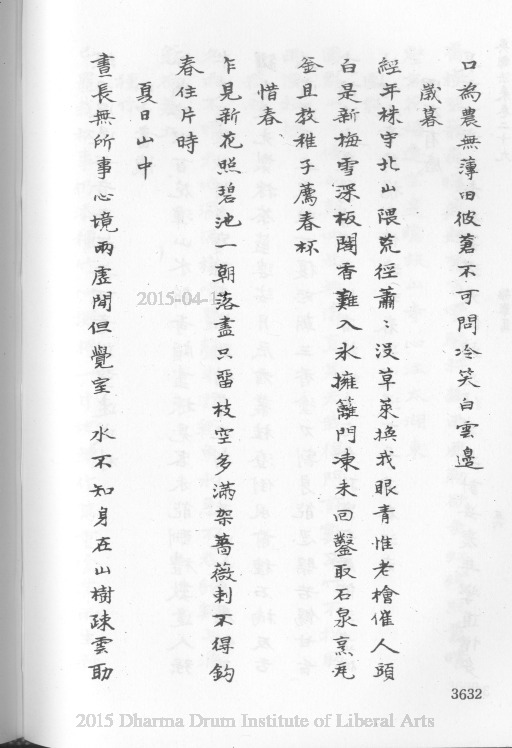 口為農無薄田彼蒼不可問冷笑白雲邊
歲暮
經年株守北山隈荒徑蕭:沒草萊換我眼青惟老檜催人頭
白是新梅雪深板閣香難入氷擁籬門凍未回鑿取石泉烹瓦
釜且教稚子薦春杯
惜春
乍見新花照碧池一朝落盡只畱枝空多滿架薔薇刺不得鈎
春住片時
夏日山中
晝長無所事心境兩虛閒但覺室 水不知身在山樹疎雲助
3632
2015-04-1
2015 Dharma Drum Institute of Liberal Arts